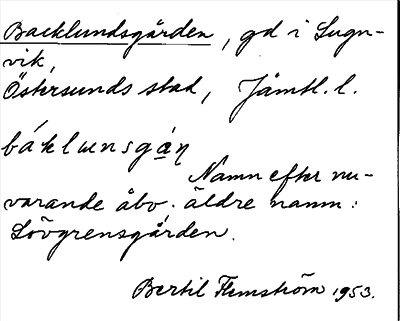 Backlundsgården, gd i Lugn-
vik,
Östersunds stad, Jämtl. l.
báklunsgạ́ɳ
Namn efter nu-
varande åbo. äldre namn:
Lövgrensgården.
Bertil Flemström 1953.